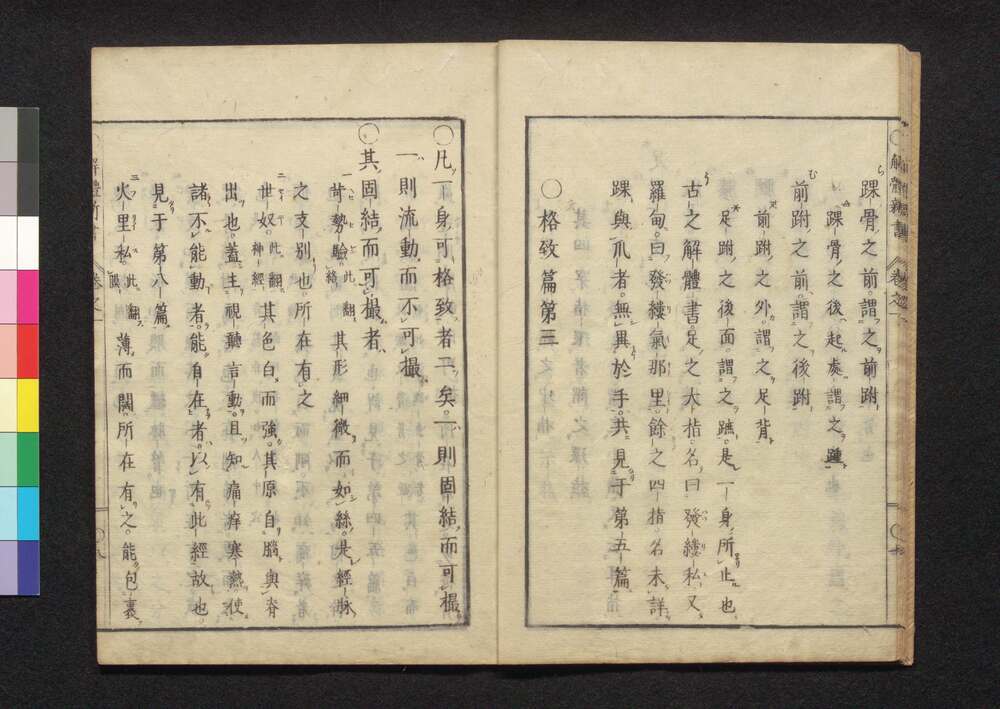 解體新書 卷之一
踝骨之前謂之前跗
踝骨之後起處謂之踵
前跗之前謂之後跗
前跗之外謂之足背
足跗之後面謂之蹠是一身所止也
古之解體書足之大指名曰發縷私又
羅甸曰發縷氣那里餘之四指名未詳
踝與爪者無異於手共見于第五篇
〇格致篇第三
〇凡一身可格致者二矣一則固結而可撮
一則流動而不可撮
〇其固結而可撮者
一苛勢驗此翻 其形細微而如絲是經脉
之支別也所在有之
二世奴此翻神經其色白而強其原自腦與脊
出也蓋主視聽言動且知痛痒寒熱使
諸不能動者能自在者以有此經故也
見于第八篇
三火里私此翻膜薄而闊所在有之能包裹
解體新書 卷之一 〇八